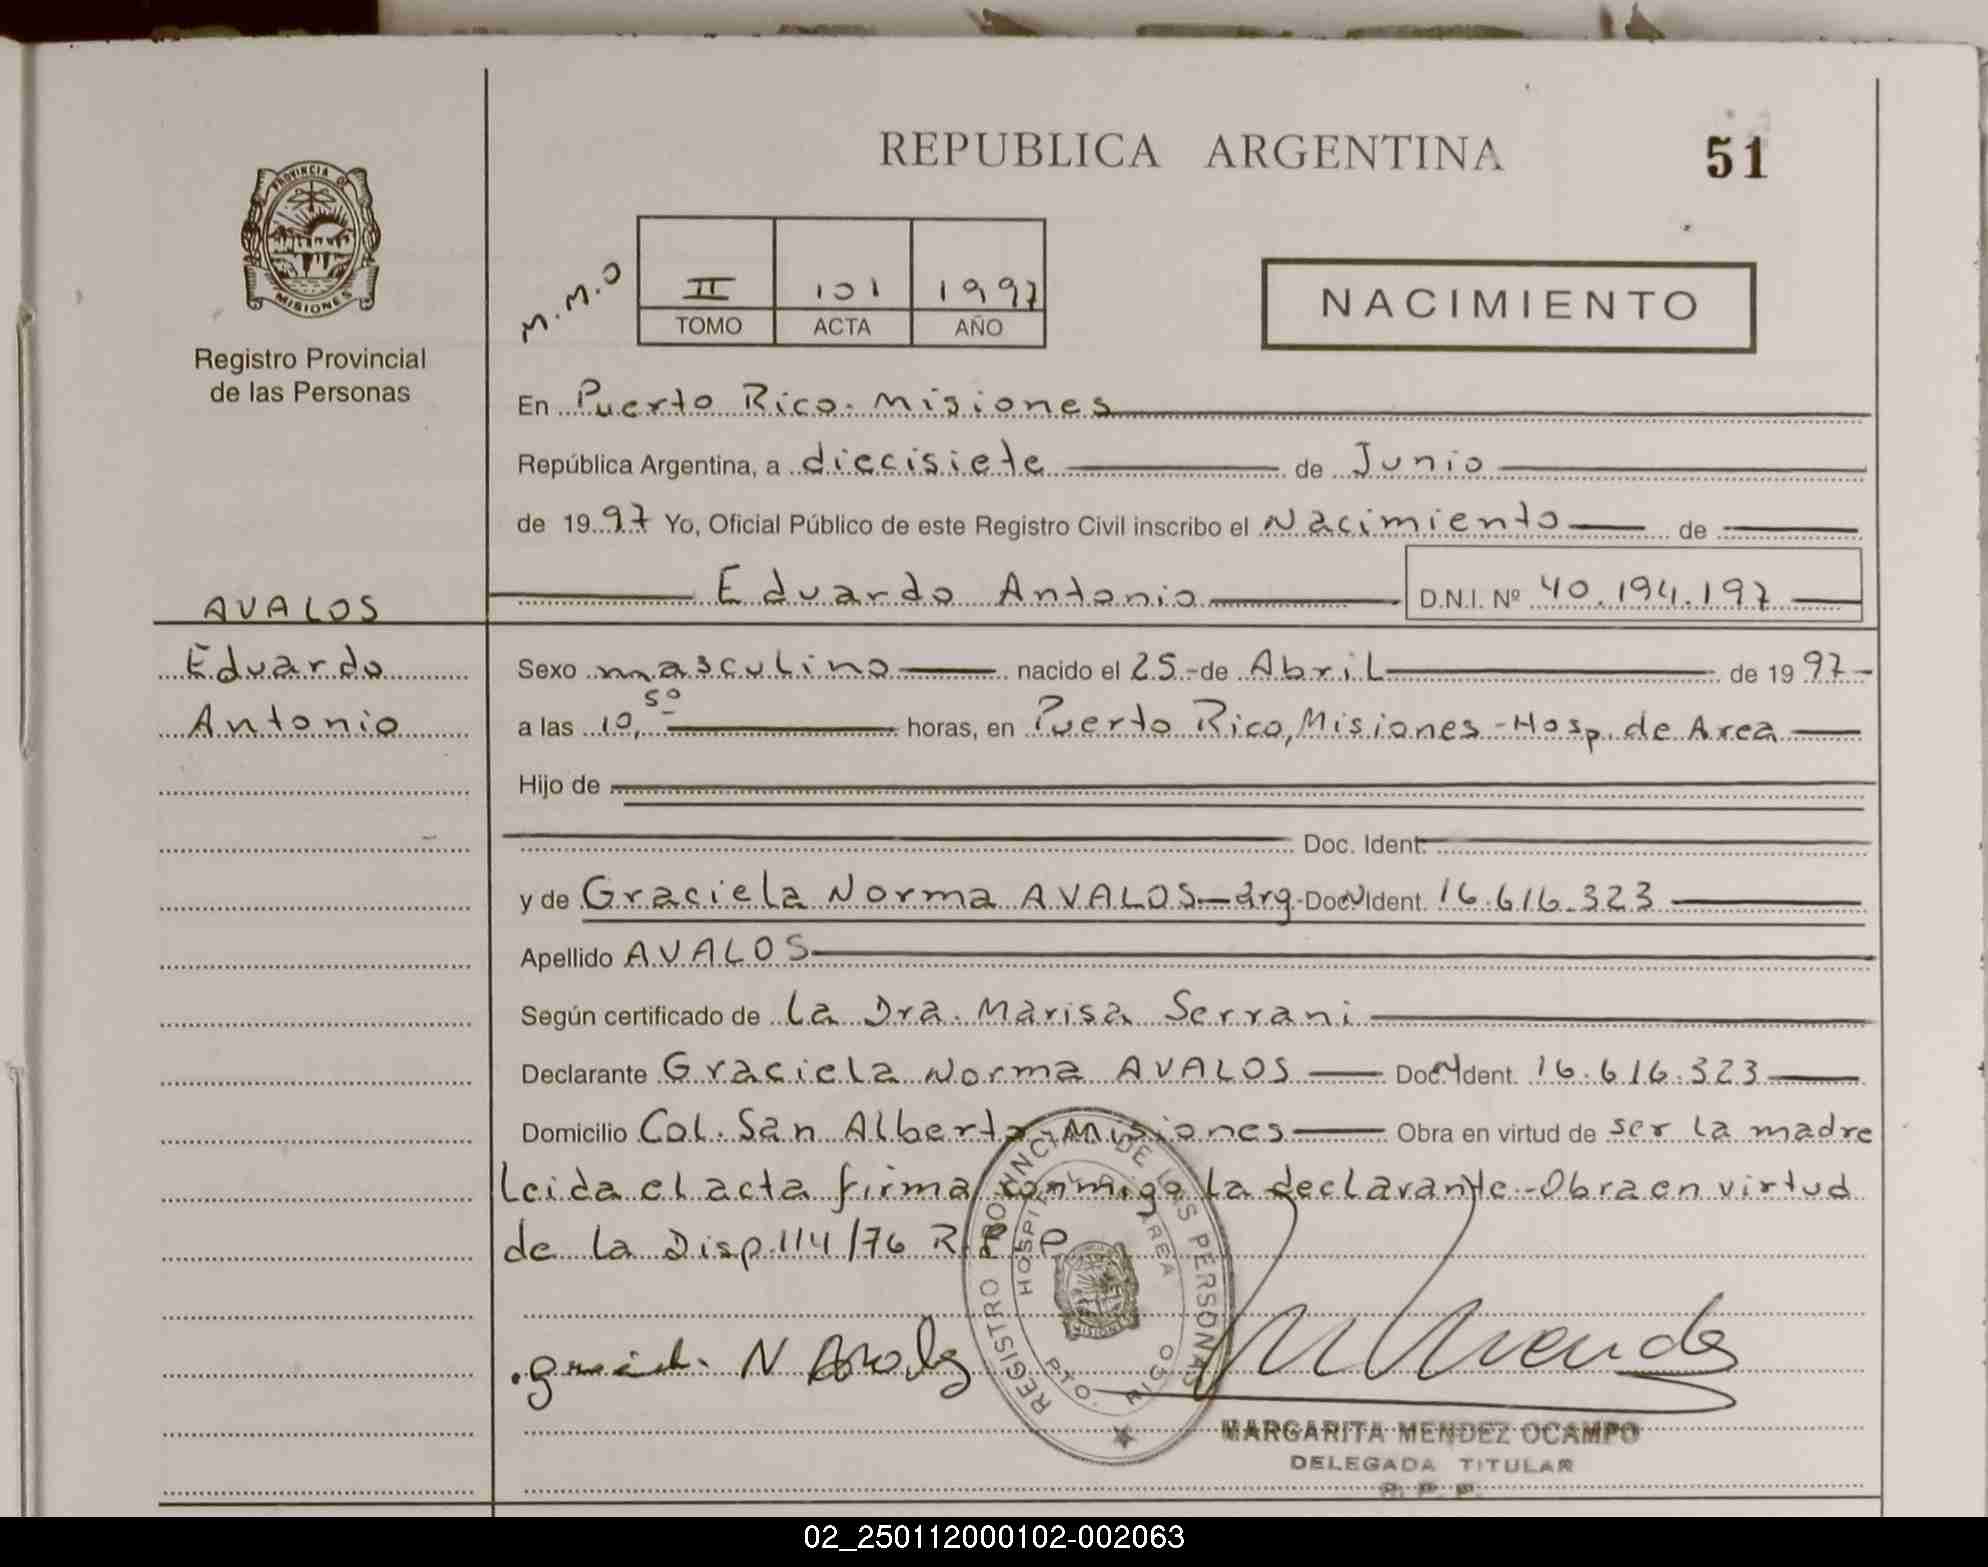 REPUBLICA ARGENTINA
51
PROVINCIA DE
MISIONES
Registro Provincial
de las Personas
M.M.O
II 101 1997
TOMO ACTA AÑO
NACIMIENTO
En Puerto Rico. Misiones
República Argentina, a diecisiete de Junio
de 1997 Yo, Oficial Público de este Registro Civil inscribo el Nacimiento de
AVALOS
Eduardo
Antonio
Eduardo Antonio D.N.I. Nº 40.194.197
Sexo masculino nacido el 25 de Abril de 1997
a las 10,50 horas, en Puerto Rico, Misiones - Hosp. de Area
Hijo de
Doc. Ident.
y de Graciela Norma AVALOS - arg. Doc. Ident. 16.616.323
Apellido AVALOS
Según certificado de la Dra. Marisa Serrani
Declarante Graciela Norma AVALOS Doc. Ident. 16.616.323
Domicilio Col. San Alberto - Misiones Obra en virtud de ser la madre
Leida el acta firma conmigo la declarante - Obra en virtud
de la Disp. 114/76 R.P.P
REGISTRO PROVINCIAL DE LAS PERSONAS
HOSPITAL AREA
PTO. RICO
MISIONES
MARGARITA MENDEZ OCAMPO
DELEGADA TITULAR
R. P. P.
02_250112000102-002063